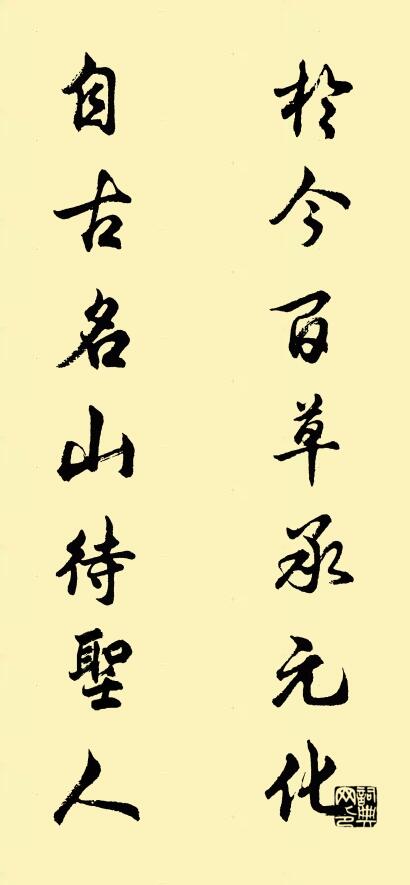 於今百草承元化
自古名山待聖人
詞典網